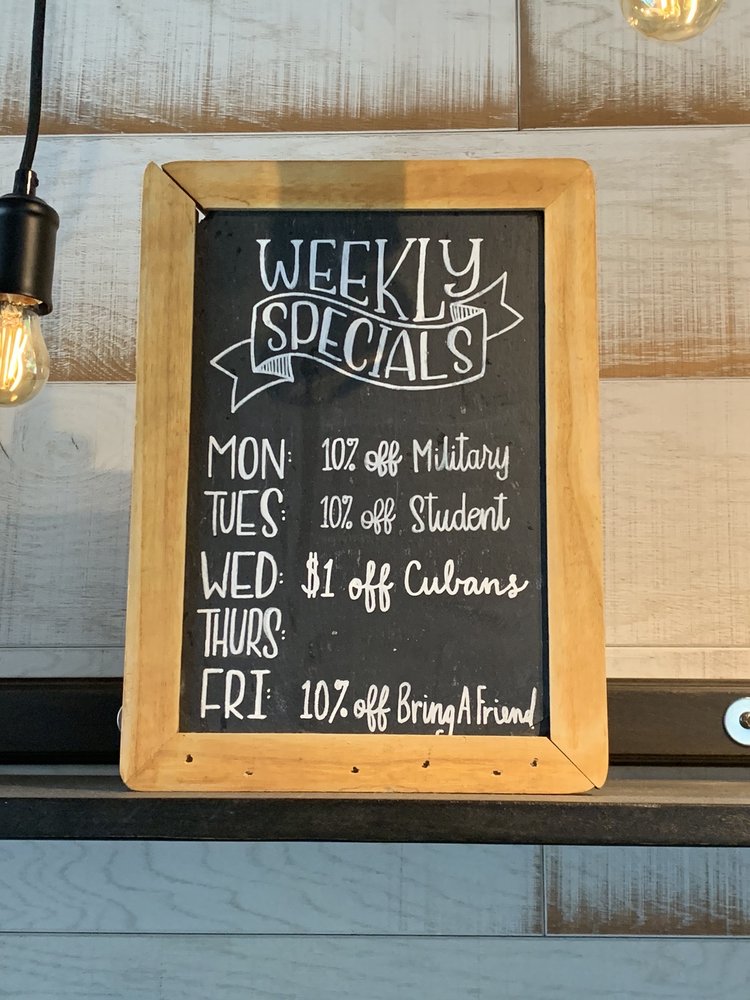 WEEKLY
SPECIALS
MON: 10% off Military
TUES: 10% off Student
WED: $1 off Cubans
THURS:
FRI: 10% off Bring A Friend